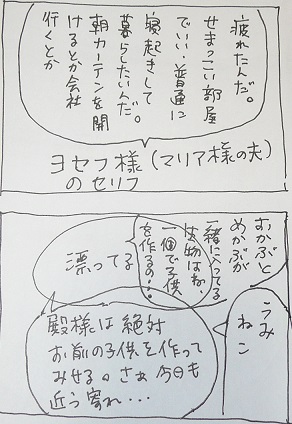 疲れたんだ。
せまっこい部屋
でいい。普通に
寝起きして
暮らしたいんだ。
朝カーテンを開
けるとか会社
行くとか
ヨセフ様(マリア様の夫)
のセリフ
おかぶと
めかぶが
一緒に入ってる
生物はね、
一個で子供
を作るの…。
漂ってる
うみ
ねこ
殿様は絶対
お前の子供を作って
みせる。さぁ今日も
近う寄れ…